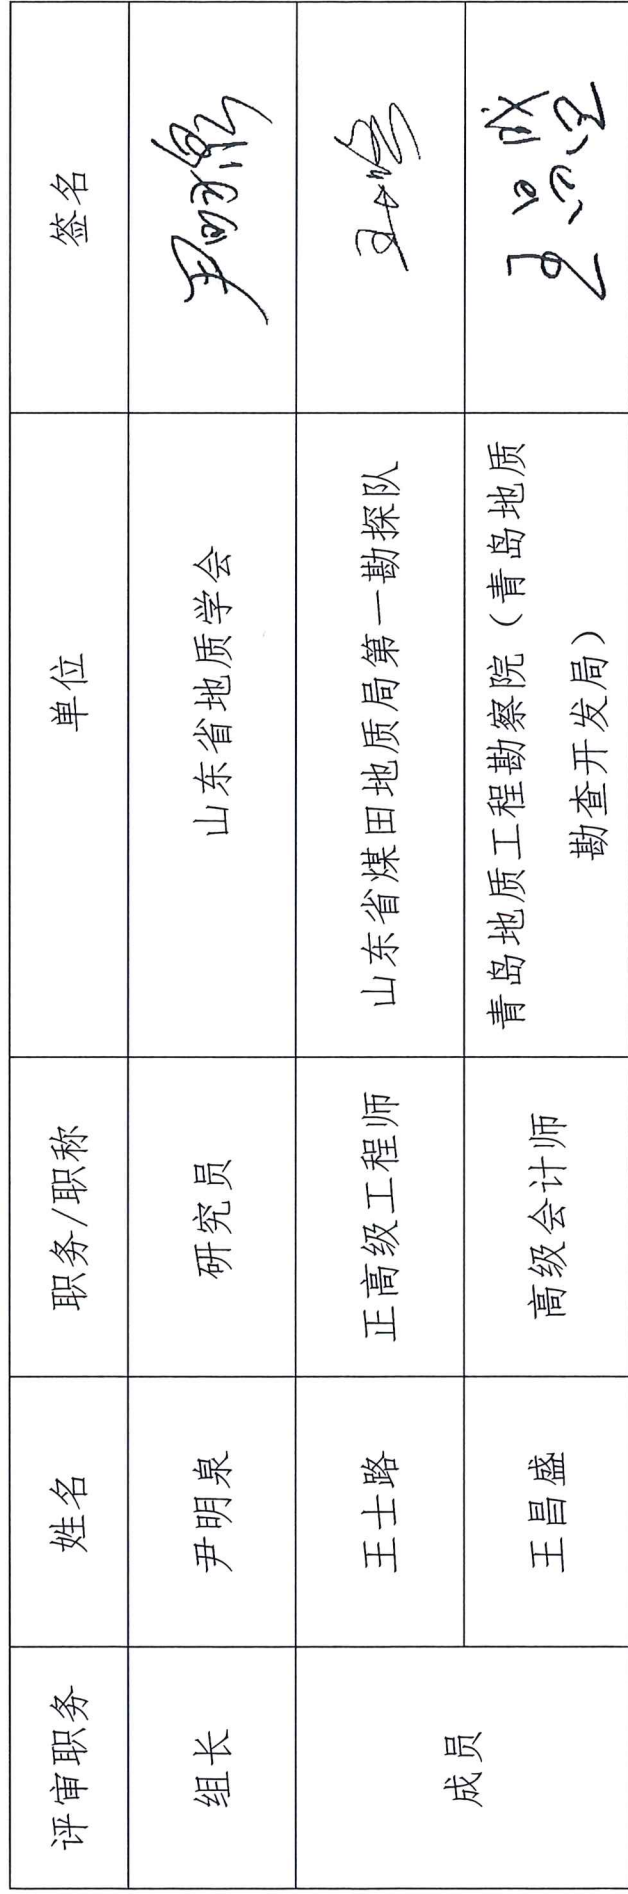 评审职务 姓名 职务/职称 单位 签名
组长 尹明泉 研究员 山东省地质学会
成员 王士路 正高级工程师 山东省煤田地质局第一勘探队
王昌盛 高级会计师 青岛地质工程勘察院（青岛地质
勘查开发局）